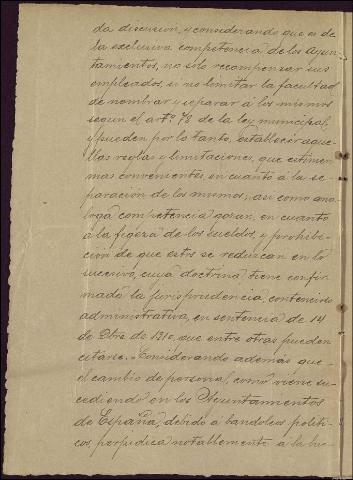 da discusion, y considerando que es de
la esclusiva competencia de los Ayun-
tamientos, no sólo recompensar sus
empleados, si no limitar la facultad
de nombrar y separar á los mismos
segun el artº 78 de la ley municipal,
y pueden por lo tanto, establecer aque-
llas reglas y limitaciones, que estimen
mas convenientes, en cuanto á la se-
paración de los mismos, así como aná-
loga competencia gozan, en cuanto
á la fijeza de los sueldos, y prohibi-
ción de que estos se reduzcan en lo
sucesivo, cuya doctrina tiene confir-
mada la jurisprudencia, contencioso
administrativa, en sentencia de 14
de Obre de 1910, que entre otras pueden
citarse. Considerando además que
el cambio de personal, como viene su-
cediendo en los Ayuntamientos
de España, debido á bandolos politi-
cos, perjudica notablemente á la bue-